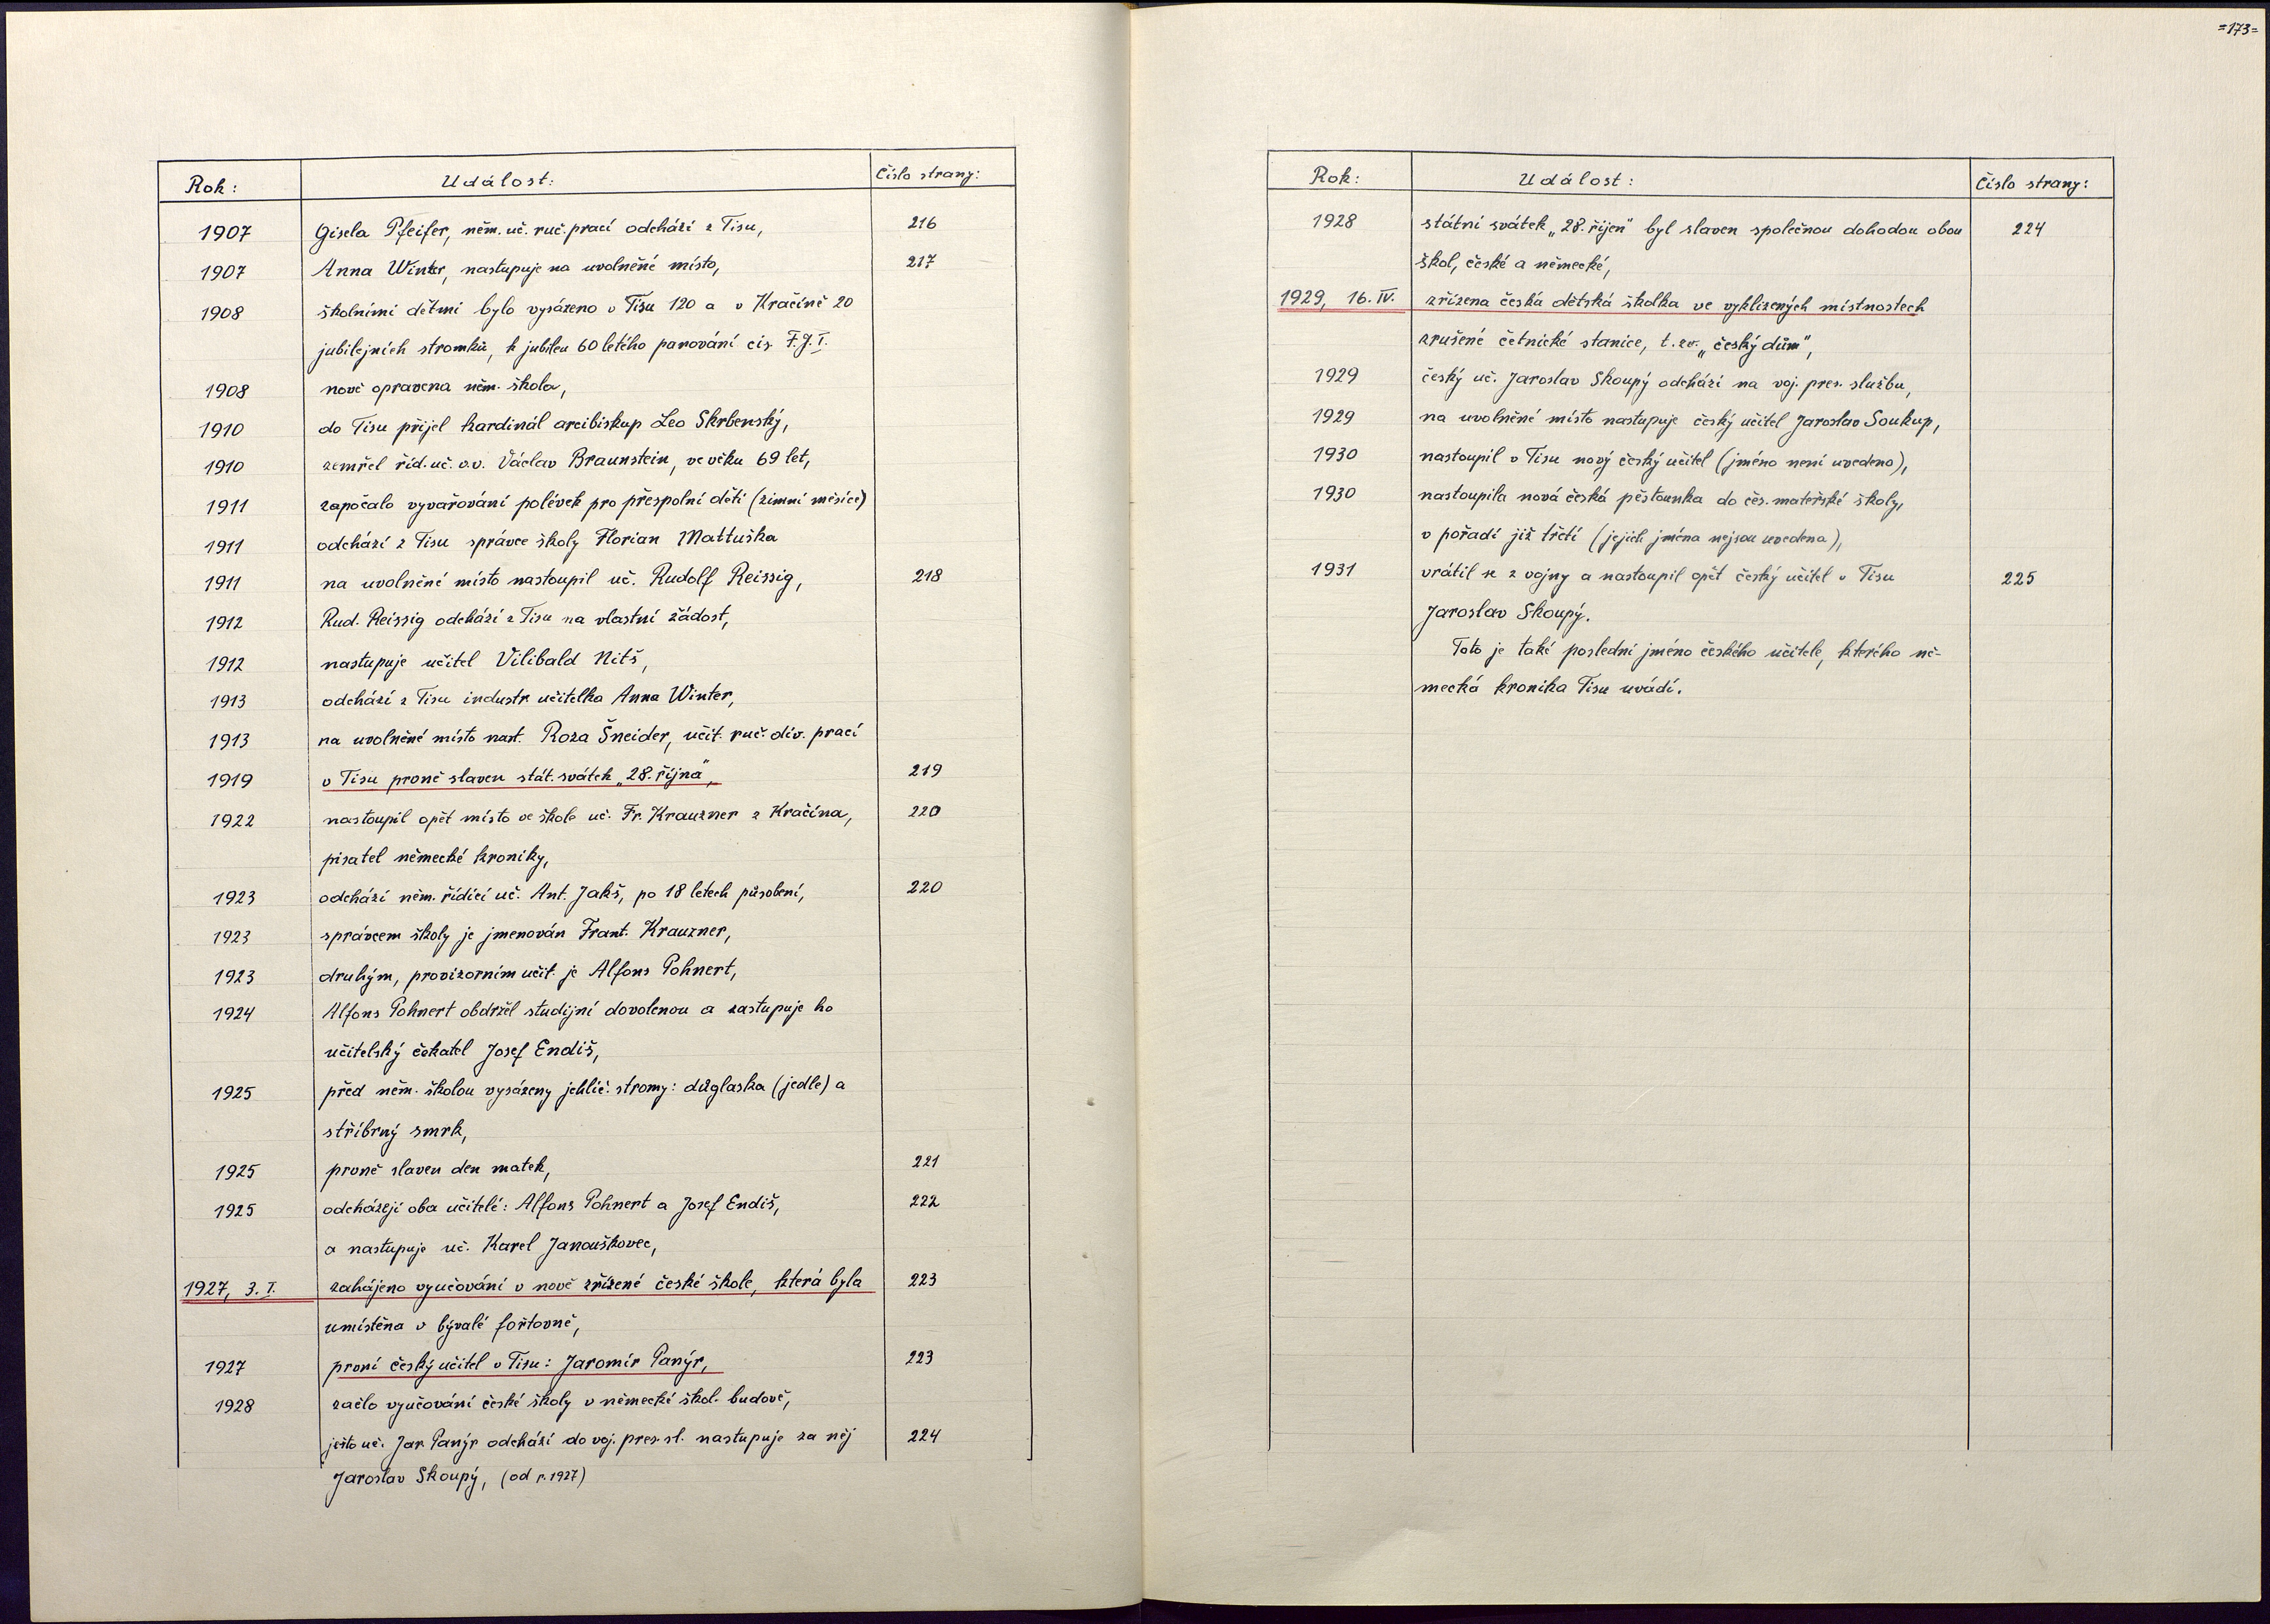 Rok: Událost: Číslo strany:
1907 Gisela Pfeifer, něm. uč. ruč. prací odchází z Tisu, 216
1907 Anna Winter, nastupuje na uvolněné místo, 217
1908 školními dětmi bylo vysázeno v Tisu 120 a v Kračíně 20
jubilejních stromků, k jubileu 60 letého panování cís. F. J. I.
1908 nově opravena něm. škola,
1910 do Tisu přijel kardinál arcibiskup Leo Skrbenský,
1910 zemřel říd. uč. v.v. Václav Braunstein, ve věku 69 let,
1911 započalo vyvařování polévek pro přespolní děti (zimní měsíce)
1911 odchází z Tisu správce školy Florian Mattuška
1911 na uvolněné místo nastoupil uč. Rudolf Reissig, 218
1912 Rud. Reissig odchází z Tisu na vlastní žádost,
1912 nastupuje učitel Vilibald Nitš,
1913 odchází z Tisu industr. učitelka Anna Winter,
1913 na uvolněné místo nast. Roza Šneider, učit. ruč. dív. prací
1919 v Tisu prvně slaven stát. svátek „28. října“, 219
1922 nastoupil opět místo ve škole uč. Fr. Krauzner z Kračína, 220
pisatel německé kroniky,
1923 odchází něm. řídící uč. Ant. Jakš, po 18 letech působení, 220
1923 správcem školy je jmenován Frant. Krauzner,
1923 druhým, provizorním učit. je Alfons Pohnert,
1924 Alfons Pohnert obdržel studijní dovolenou a zastupuje ho
učitelský čekatel Josef Endiš,
1925 před něm. školou vysázeny jehlič. stromy: důglaska (jedle) a
stříbrný smrk,
1925 prvně slaven den matek, 221
1925 odcházejí oba učitelé: Alfons Pohnert a Josef Endiš, 222
a nastupuje uč. Karel Janouškovec,
1927, 3. I. zahájeno vyučování v nově zřízené české škole, která byla 223
umístěna v bývalé fořtovně,
1927 první český učitel v Tisu: Jaromír Panýr, 223
1928 začlo vyučování české školy v německé škol. budově,
ježto uč. Jar. Panýr odchází do voj. pres. sl. nastupuje za něj 224
Jaroslav Skoupý, (od r. 1927)
=173=
Rok: Událost: Číslo strany:
1928 státní svátek „28. říjen“ byl slaven společnou dohodou obou 224
škol, české a německé,
1929, 16. IV. zřízena česká dětská školka ve vyklizených místnostech
zrušené četnické stanice, t. zv. „český dům“,
1929 český uč. Jaroslav Skoupý odchází na voj. pres. službu,
1929 na uvolněné místo nastupuje český učitel Jaroslav Soukup,
1930 nastoupil v Tisu nový český učitel (jméno není uvedeno),
1930 nastoupila nová česká pěstounka do čes. mateřské školy,
v pořadí již třetí (jejich jména nejsou uvedena),
1931 vrátil se z vojny a nastoupil opět český učitel v Tisu 225
Jaroslav Skoupý.
Toto je také poslední jméno českého učitele, kterého ně-
mecká kronika Tisu uvádí.